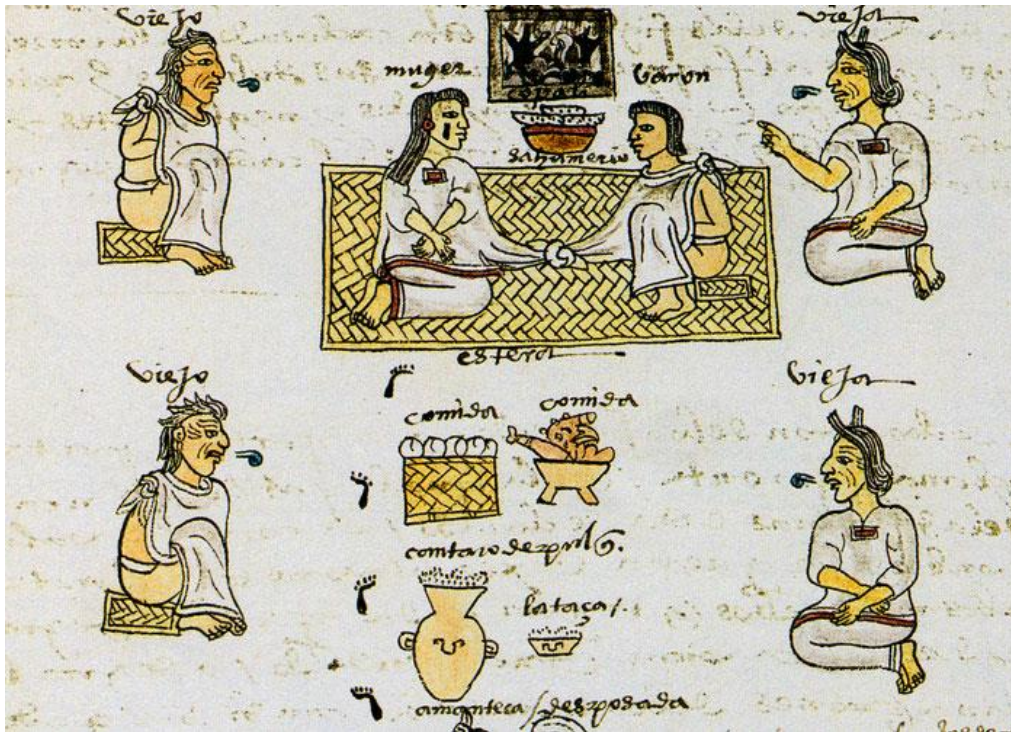 viejo
vieja
muger
varon
sahumerio
estera
viejo
vieja
comida
comida
cantaro de pulq.
la taça/.
amanteca / desposada